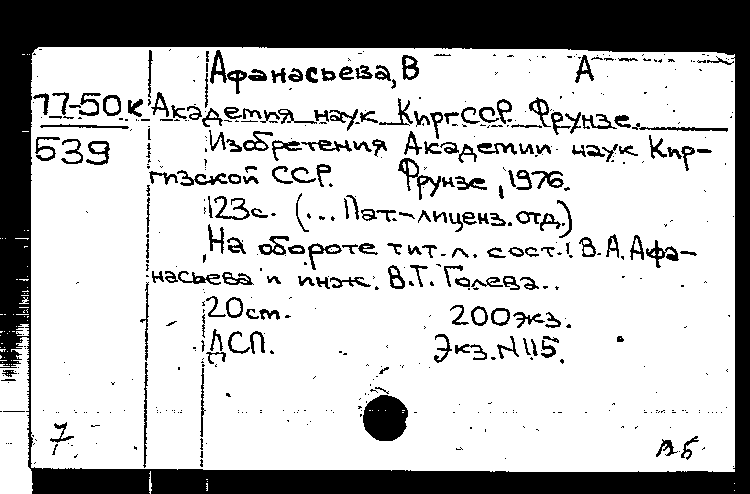 Афанасьева, В А
77-50к Академия наук КиргССР. Фрунзе.
539 Изобретения Академии наук Кир-
гизской ССР. Фрунзе, 1976.
123с. (... Пат.-лиценз. отд.)
На обороте тит. л. сост.: В.А. Афа-
насьева и инж. В.Т. Голева..
20см. 200экз.
ДСП. Экз. N115.
7 вб